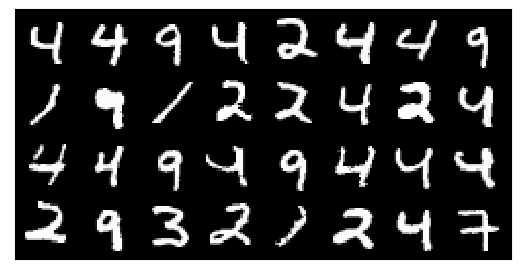 4 4 9 4 2 4 4 9
1 9 1 2 2 4 2 4
4 4 9 4 9 4 4 4
2 9 3 2 1 2 4 7